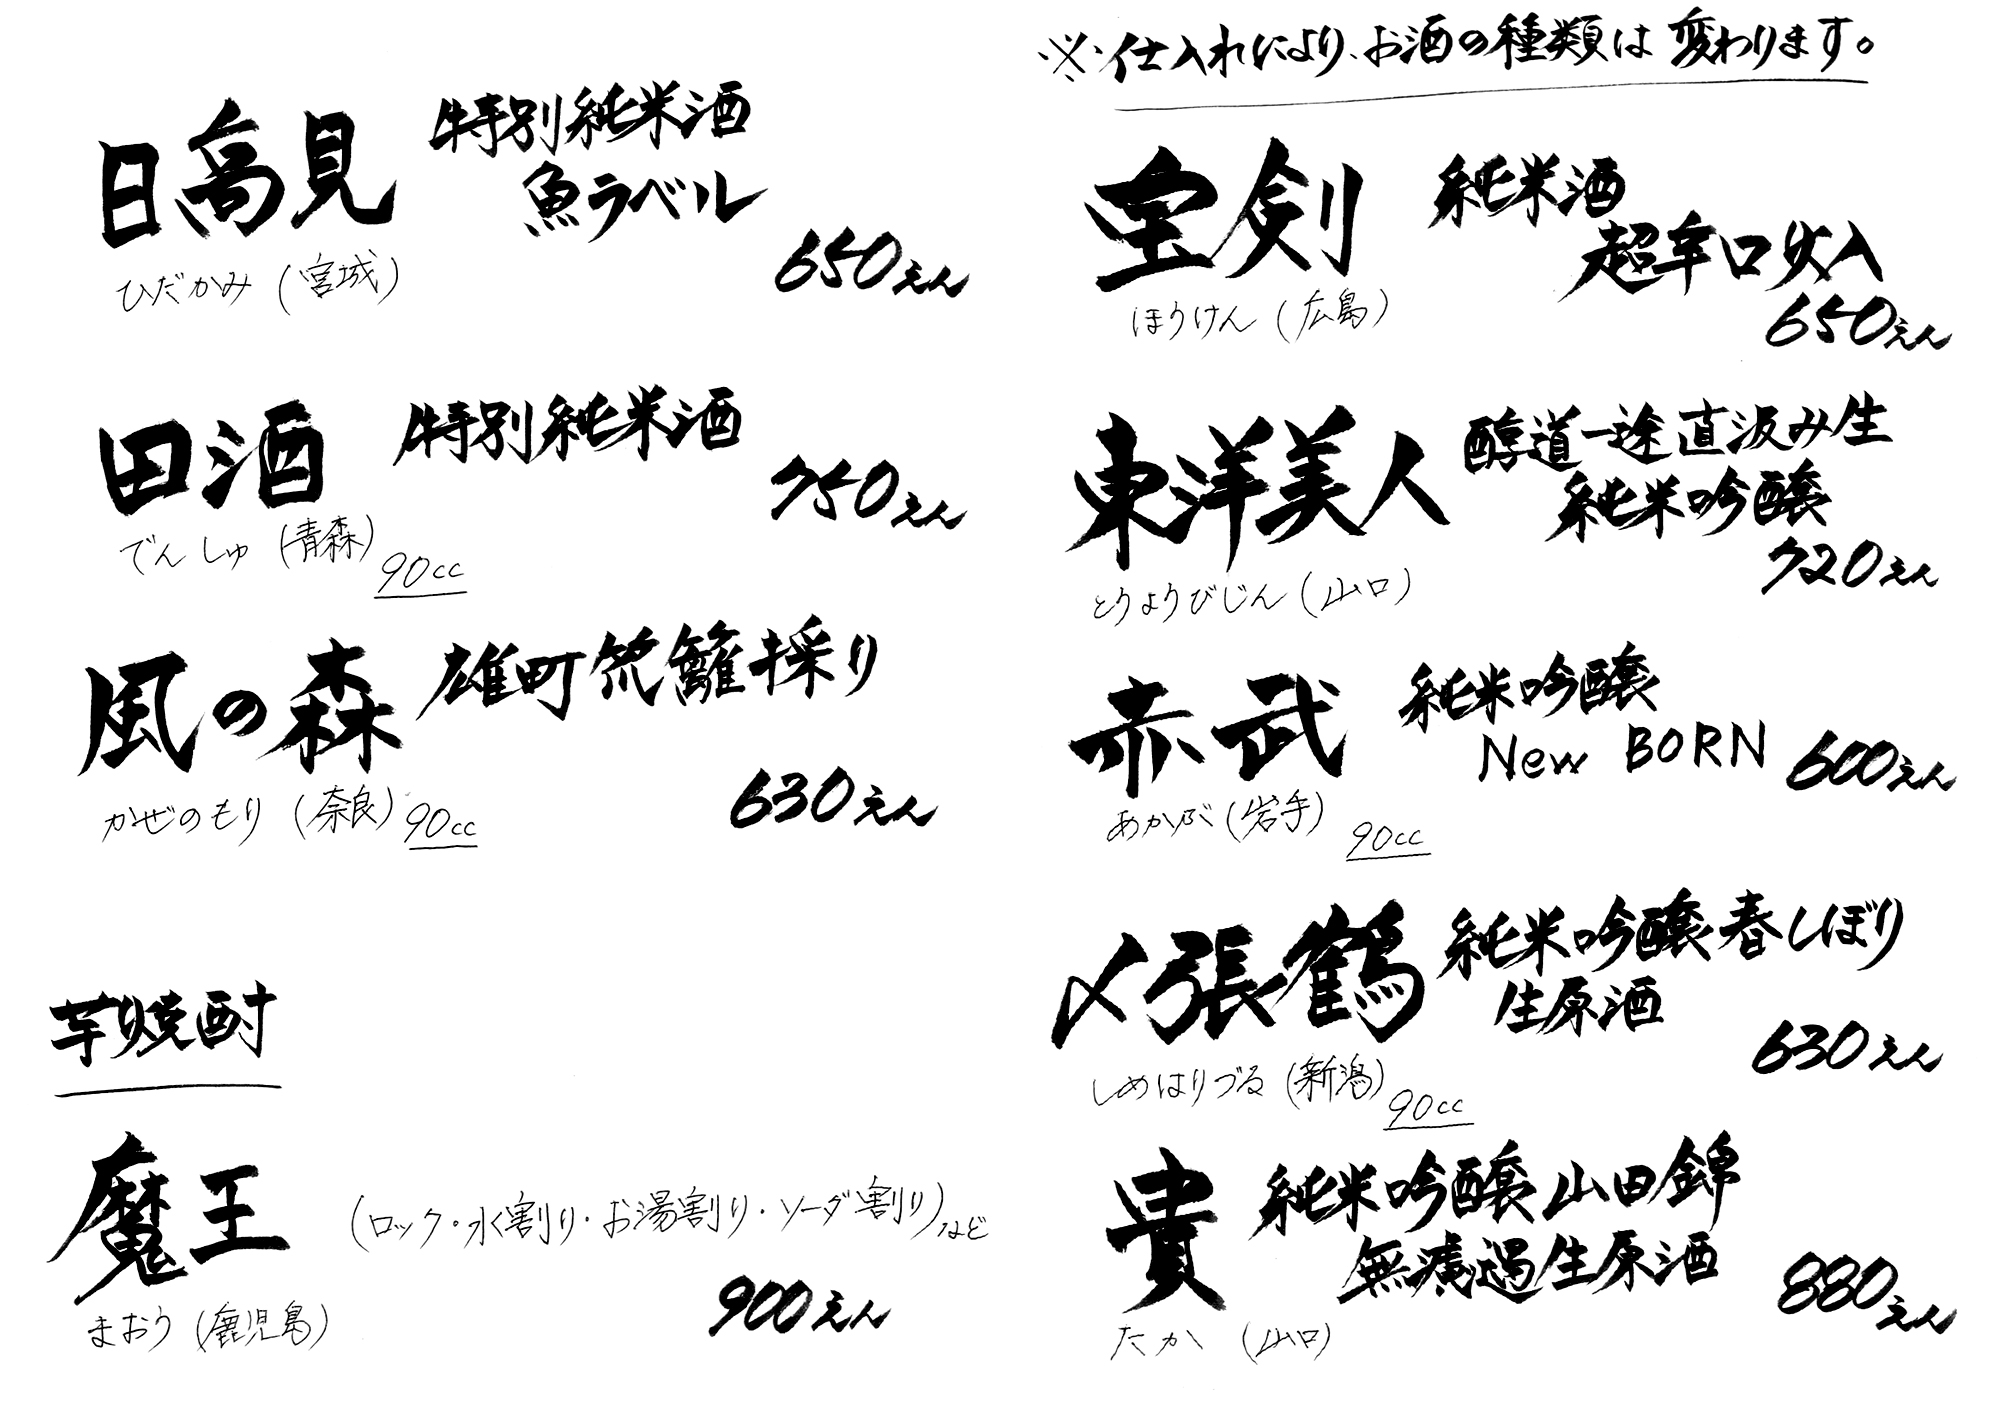 ※仕入れにより、お酒の種類は変わります。
日高見 特別純米酒
魚ラベル
650えん
ひだかみ (宮城)
田酒 特別純米酒
750えん
でんしゅ (青森)
90cc
風の森 雄町 笊籬採り
630えん
かぜのもり (奈良) 90cc
芋焼酎
魔王 (ロック・水割り・お湯割り・ソーダ割り)など
900えん
まおう (鹿児島)
宝剣 純米酒
超辛口火入
650えん
ほうけん (広島)
東洋美人 醇道一途 直汲み生
純米吟醸
720えん
とうようびじん (山口)
赤武 純米吟醸
New BORN 600えん
あかぶ (岩手)
90cc
〆張鶴 純米吟醸 春しぼり
生原酒
630えん
しめはりづる (新潟)
90cc
貴 純米吟醸 山田錦
無濾過生原酒
880えん
たか (山口)